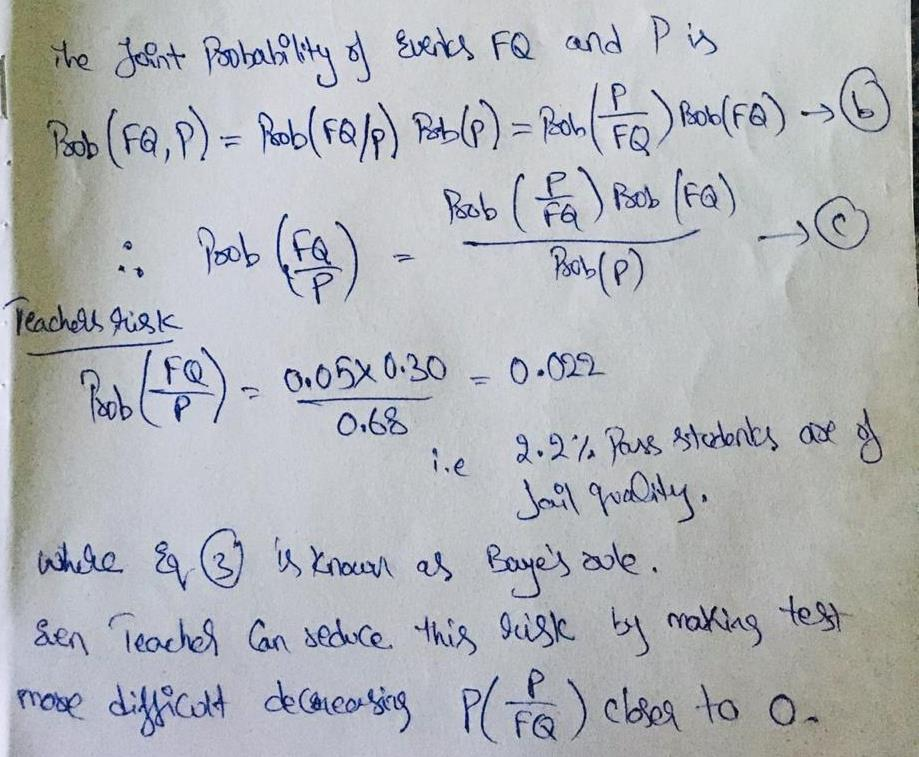 The Joint Probability of Events FQ and P is
Prob (FQ, P) = Prob(FQ/P) Prob(P) = Prob(P/FQ) Prob(FQ) → (b)
∴ Prob (FQ/P) = Prob (P/FQ) Prob (FQ) / Prob(P) → (c)
Teachers risk
Prob (FQ/P) = 0.05 x 0.30 / 0.68 = 0.022
i.e 2.2% Pass students are of
fail quality.
where Eq (3) is known as Baye's rule.
Teacher Can reduce this risk by making test
more difficult decreasing P(P/FQ) closer to 0.